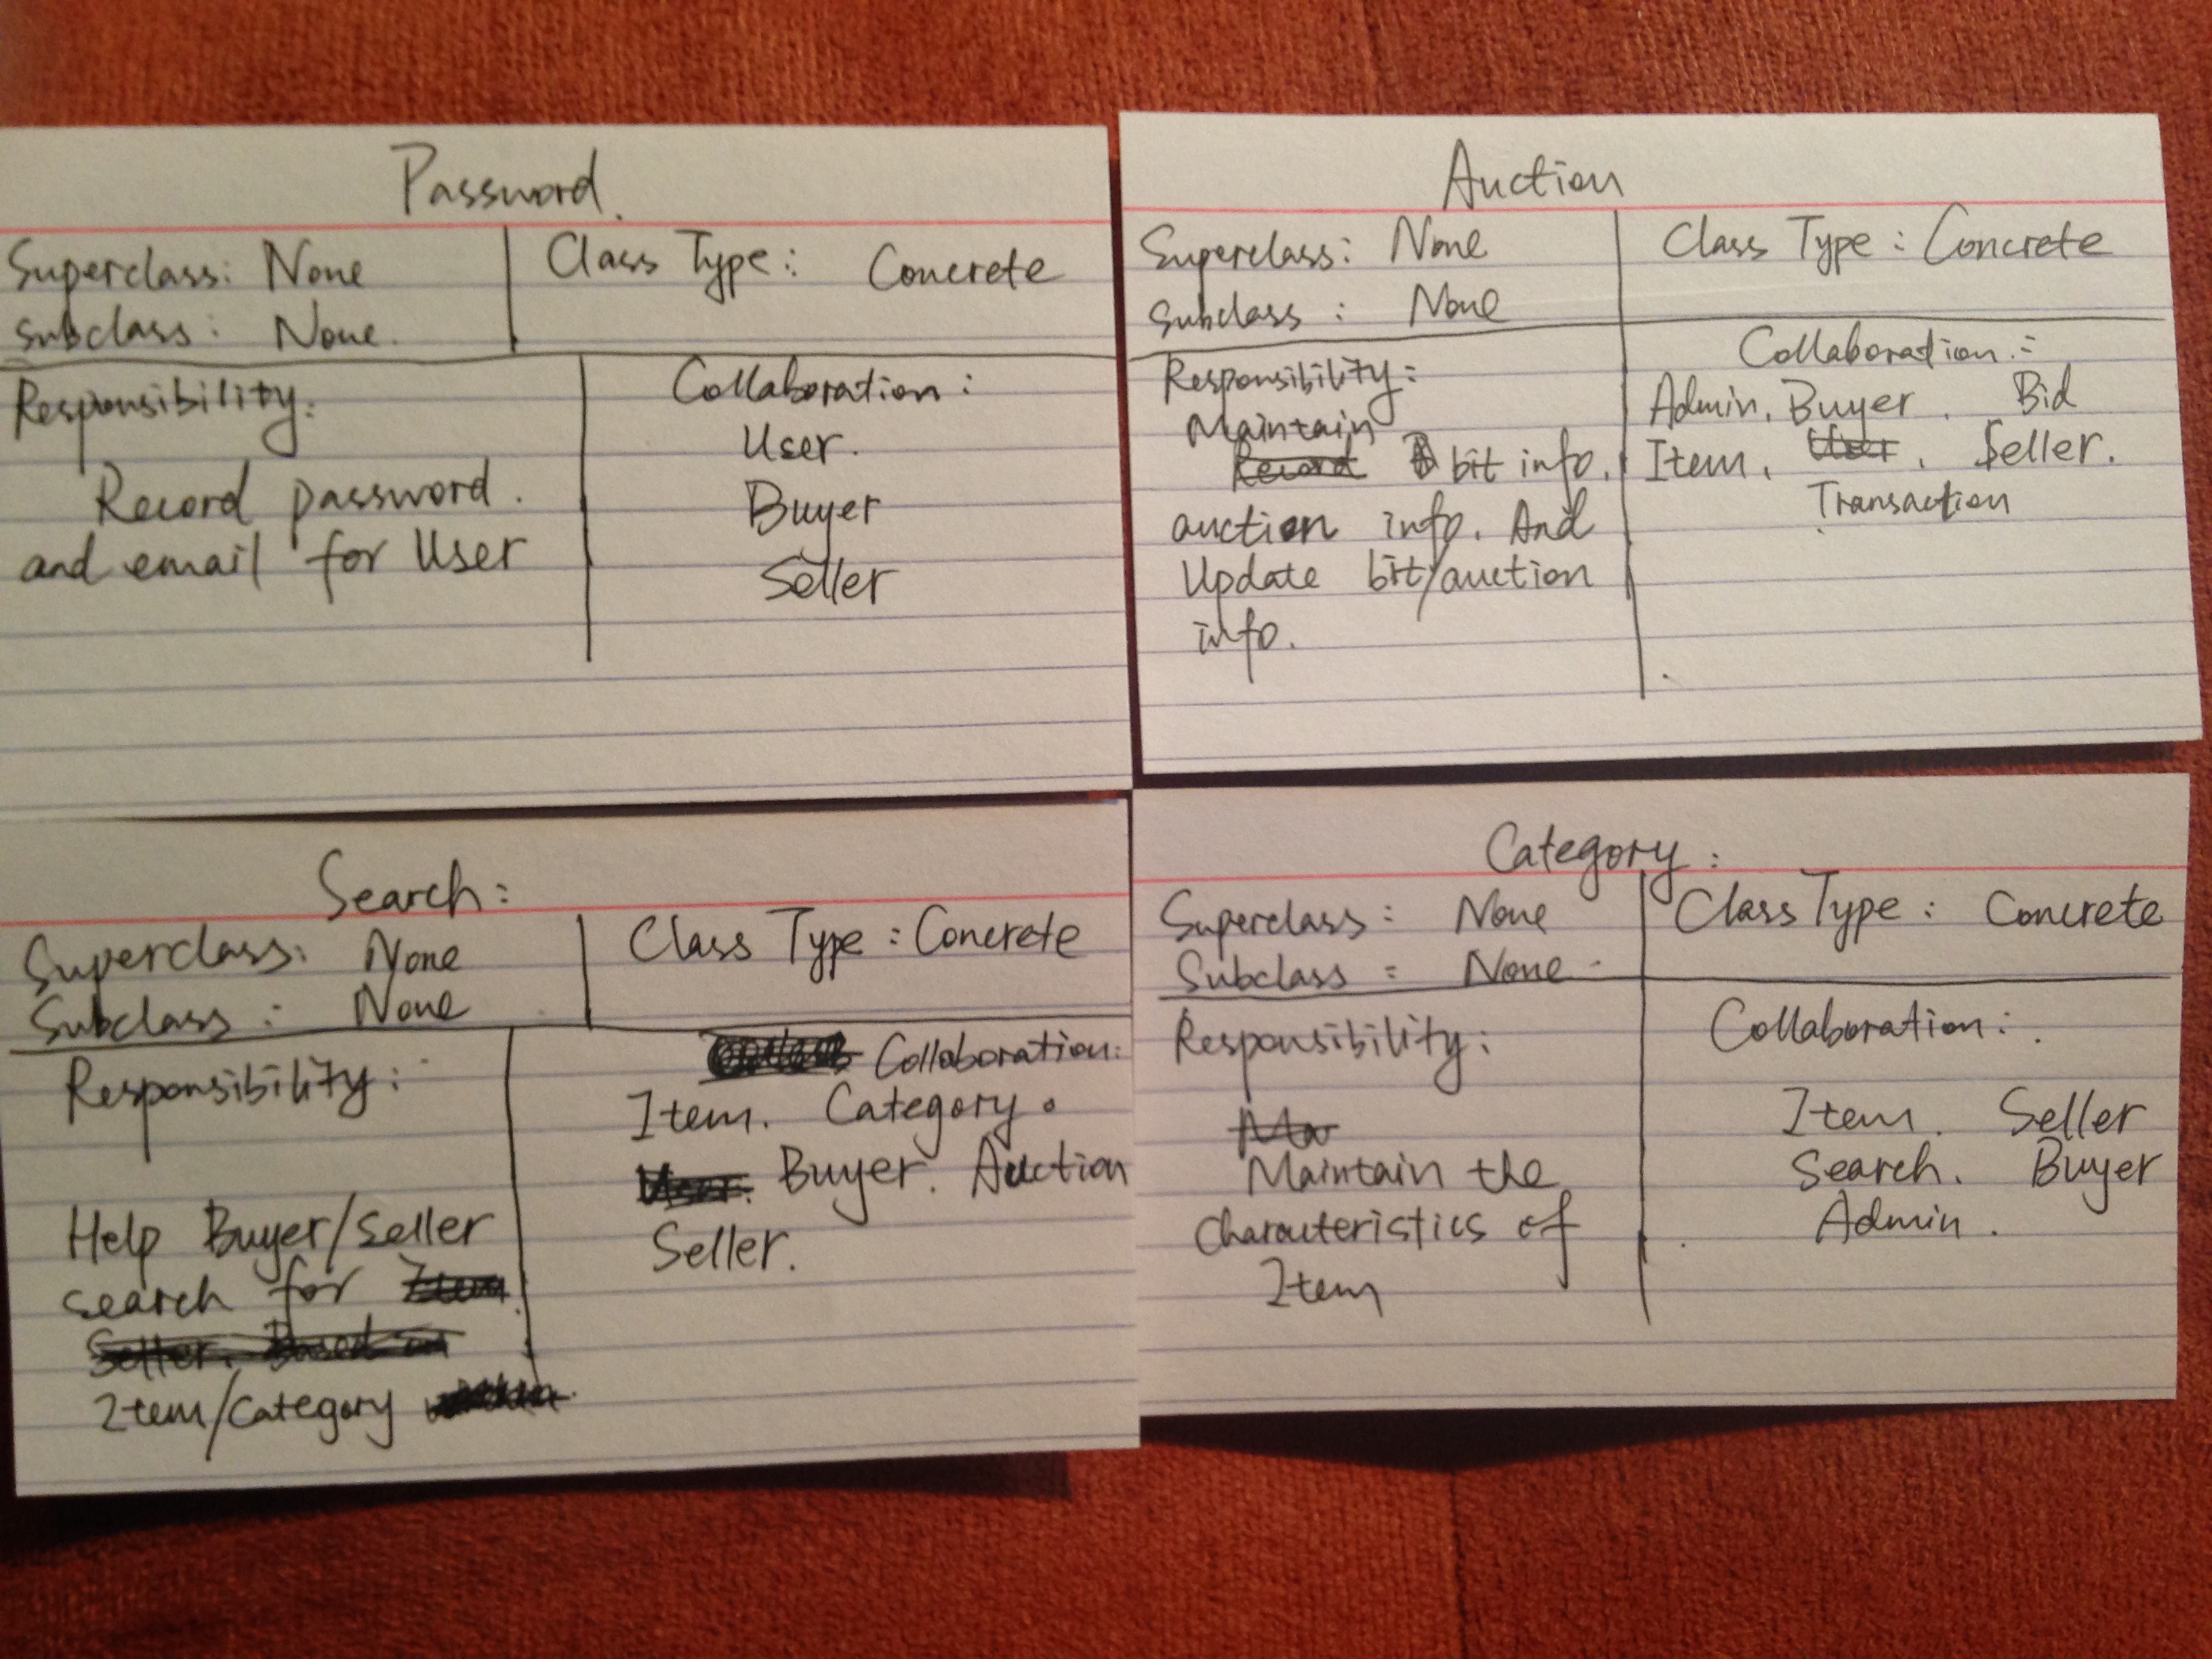 Password.
Superclass: None
Subclass: None.
Class Type: Concrete
Responsibility:
Record password.
and email for User
Collaboration:
User.
Buyer
Seller
Auction
Superclass: None
Subclass: None
Class Type: Concrete
Responsibility:
Maintain
Record bit info.
auction info. And
Update bit/auction
info.
Collaboration:
Admin. Buyer. Bid
Item. User. Seller.
Transaction
Search:
Superclass: None
Subclass: None
Class Type: Concrete
Responsibility:
Help Buyer/Seller
search for Item
Seller. Based on
Item/Category
Collaboration:
Item. Category.
User. Buyer. Auction
Seller.
Category:
Superclass: None
Subclass: None.
Class Type: Concrete
Responsibility:
Ma
Maintain the
Charauteristics of
Item
Collaboration:
Item. Seller
Search. Buyer
Admin.